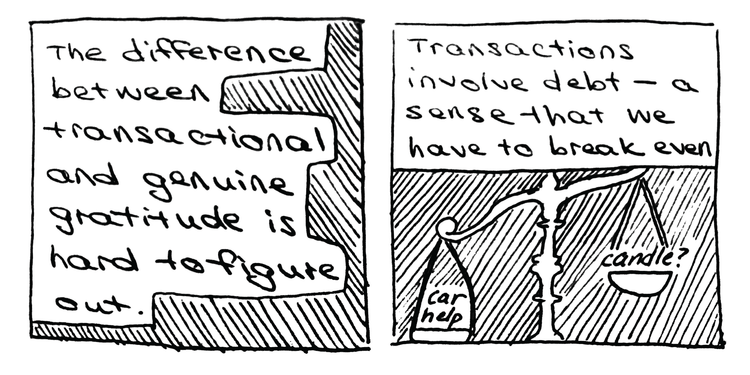 The difference
between
transactional
and genuine
gratitude is
hard to figure
out.
Transactions
involve debt – a
sense that we
have to break even
candle?
car
help